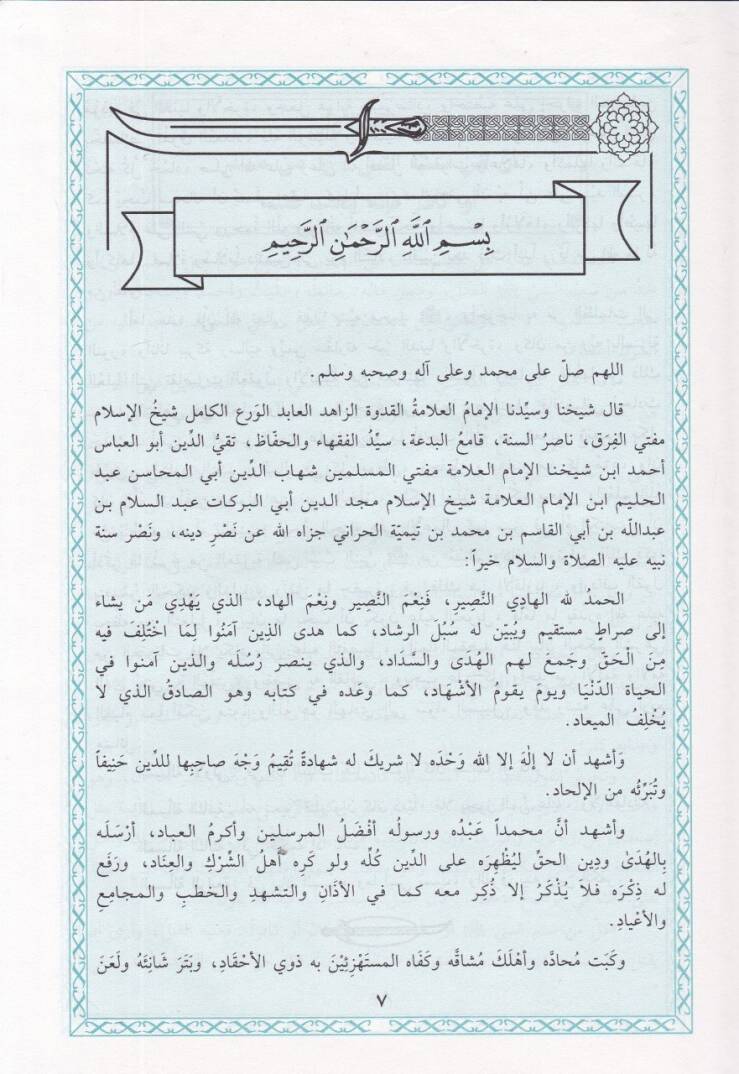 بِسْمِ ٱللَّهِ ٱلرَّحْمَٰنِ ٱلرَّحِيمِ
اللهم صلِّ على محمد وعلى آله وصحبه وسلم.
قال شيخنا وسيِّدنا الإمامُ العلامةُ القدوة الزاهد العابد الوَرع الكامل شيخُ الإسلام
مفتي الفِرَق، ناصرُ السنة، قامعُ البدعة، سيِّدُ الفقهاء والحفّاظ، تقيُّ الدِّين أبو العباس
أحمد ابن شيخنا الإمام العلامة مفتي المسلمين شهاب الدِّين أبي المحاسن عبد
الحليم ابن الإمام العلامة شيخ الإسلام مجد الدين أبي البركات عبد السلام بن
عبداللّه بن أبي القاسم بن محمد بن تيميّة الحراني جزاه الله عن نَصْر دينه، ونَصْر سنة
نبيه عليه الصلاة والسلام خيراً:
الحمدُ لله الهادِي النَّصِيرِ، فَنِعْمَ النَّصِير ونِعْمَ الهاد، الذي يَهْدِي مَن يشاء
إلى صراطٍ مستقيم ويُبيّن له سُبُلَ الرشاد، كما هدى الذِين آمَنُوا لِمَا اخْتُلَف فيه
مِنَ الْحَقِّ وجَمعَ لهم الهُدَى والسَّدَاد، والذي ينصر رُسُلَه والذين آمنوا في
الحياة الدّنْيَا ويومَ يقومُ الأشْهَاد، كما وعَده في كتابه وهو الصادقُ الذي لا
يُخْلِفُ الميعاد.
وَأشهد أن لا إلٰهَ إلا الله وَحْدَه لا شريكَ له شهادةً تُقِيمُ وَجْهَ صاحِبِها للدِّين حَنِيفاً
وتُبَرِّئُه من الإلحاد.
وأشهد أنَّ محمداً عَبْدُه ورسولُه أفْضَلُ المرسلين وأكرمُ العباد، أرْسَلَه
بِالهُدَىٰ ودِينِ الحقِّ ليُظْهِرَه على الدِّين كُلِّه ولو كَرِه أهلُ الشِّرْكِ والعِنَاد، ورَفَع
له ذِكْرَه فَلاَ يُذْكَرُ إلا ذُكِرَ معه كما في الأذَانِ والتشهدِ والخطَبِ والمجامِعِ
والأعْيادِ.
وكَبَت مُحادَّه وأهْلَكَ مُشاقَّه وكَفَاه المستَهْزِئِيْنَ به ذوي الأحْقَادِ، وبَتَرَ شَانِئَهُ ولَعَنَ
٧